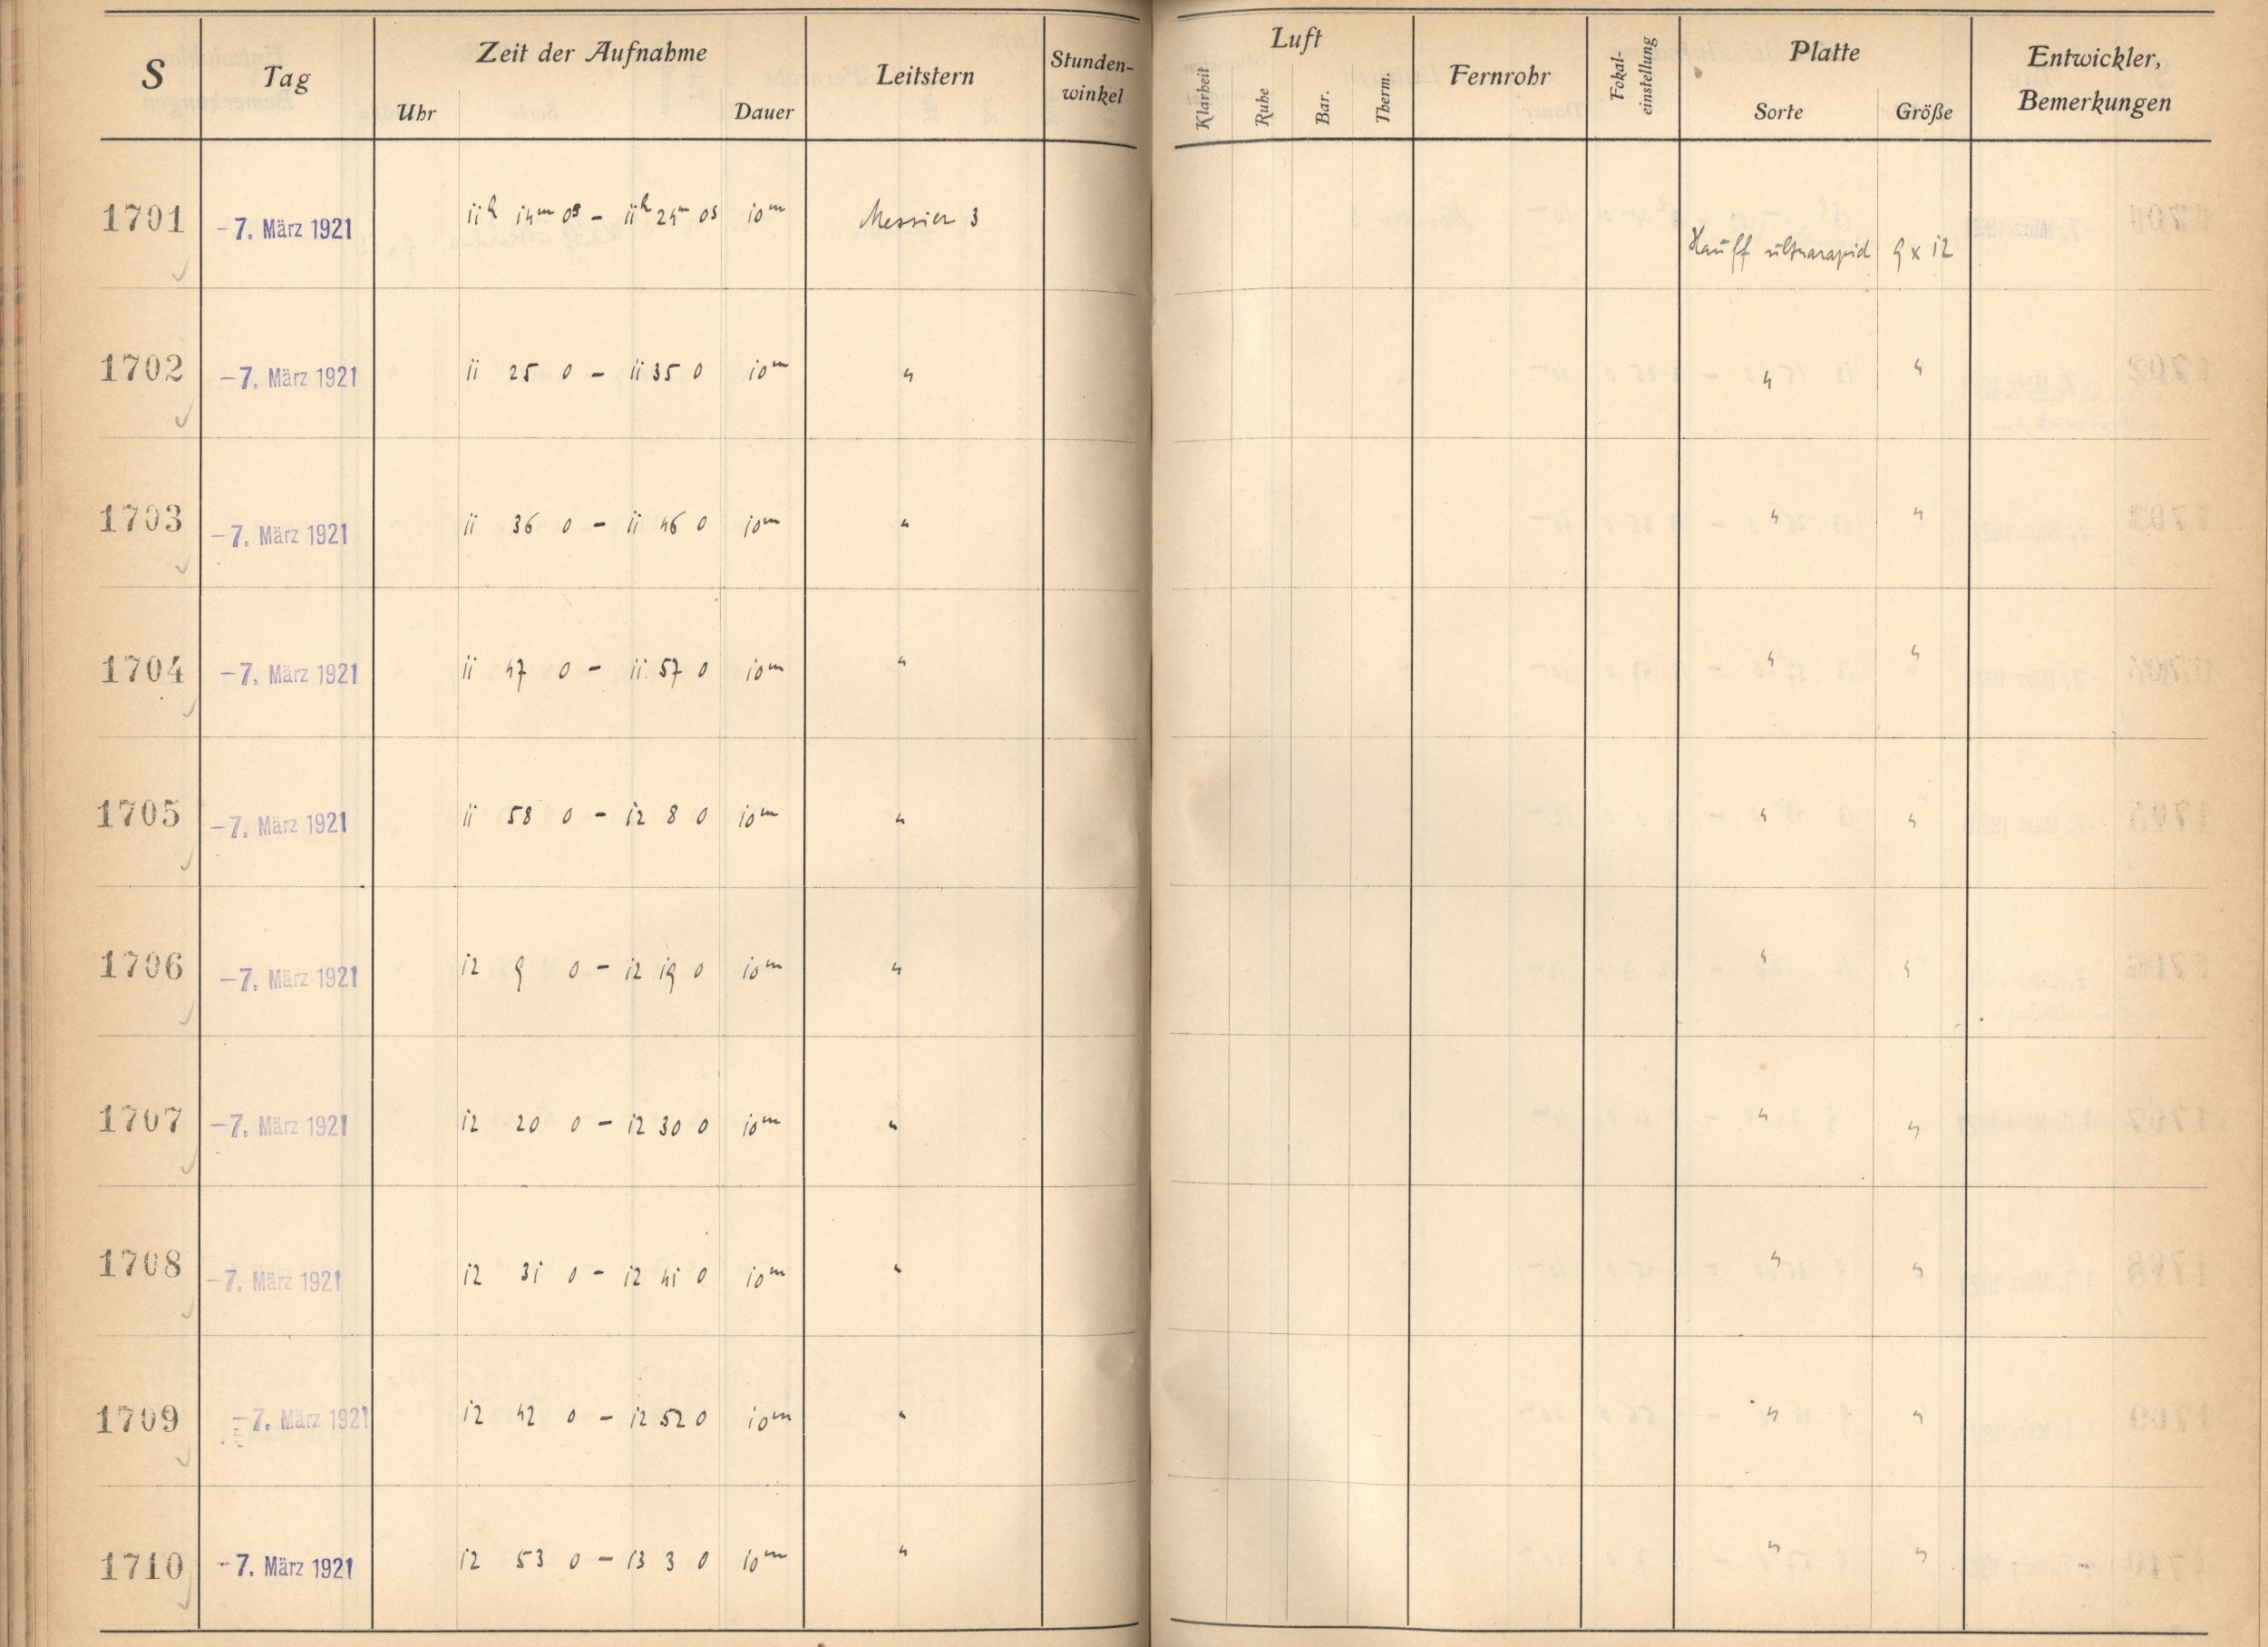 S Tag Zeit der Aufnahme Leitstern Stunden-winkel Luft Fernrohr Fokal-einstellung Platte Entwickler, Bemerkungen
Uhr Dauer Klarheit Ruhe Bar. Therm. Sorte Größe
1701 -7. März 1921 11h 14m 0s - 11h 24m 0s 10m Messier 3 Hauff ultrarapid 9 x 12
1702 -7. März 1921 11 25 0 - 11 35 0 10m " " "
1703 -7. März 1921 11 36 0 - 11 46 0 10m " " "
1704 -7. März 1921 11 47 0 - 11 57 0 10m " " "
1705 -7. März 1921 11 58 0 - 12 8 0 10m " " "
1706 -7. März 1921 12 9 0 - 12 19 0 10m " " "
1707 -7. März 1921 12 20 0 - 12 30 0 10m " " "
1708 -7. März 1921 12 31 0 - 12 41 0 10m " " "
1709 -7. März 1921 12 42 0 - 12 52 0 10m " " "
1710 -7. März 1921 12 53 0 - 13 3 0 10m " " "